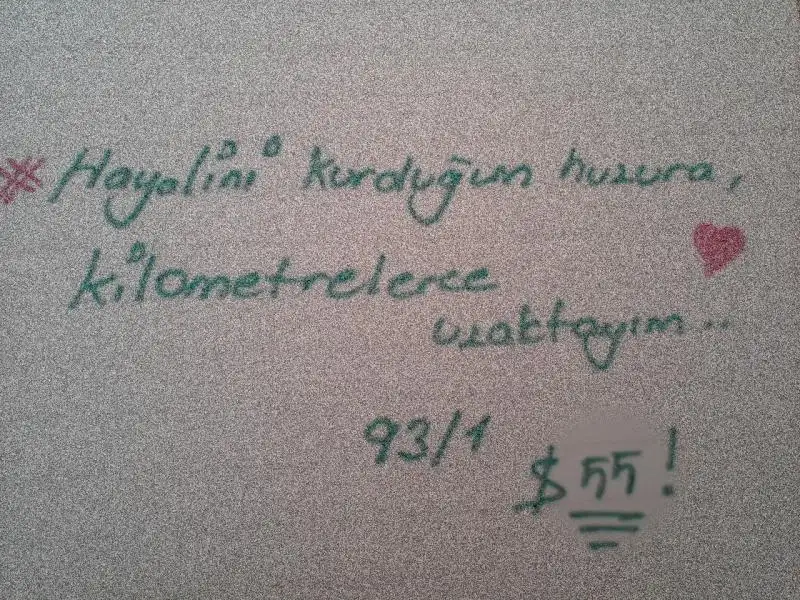 Hayalini kurduğun huzura,
kilometrelerce
uzaktayım..
93/1
$55!